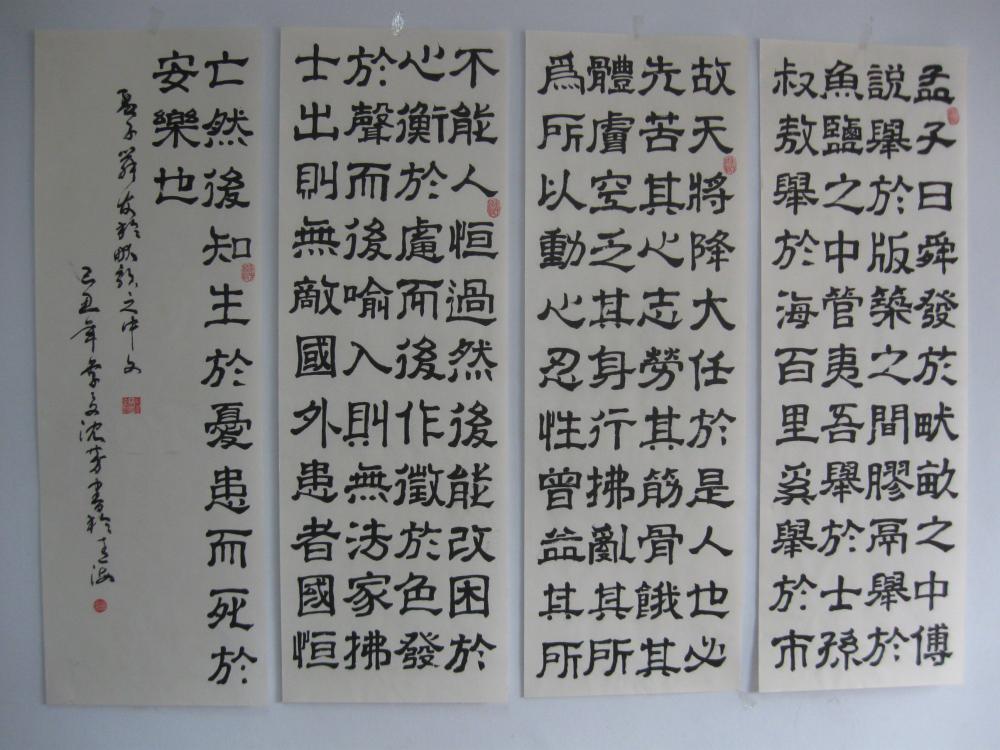 孟子曰舜發於畎畝之中傅
說舉於版築之間膠鬲舉於
魚鹽之中管夷吾舉於士孫
叔敖舉於海百里奚舉於市
故天將降大任於是人也必
先苦其心志勞其筋骨餓其
體膚空乏其身行拂亂其所
爲所以動心忍性曾益其所
不能人恒過然後能改困於
心衡於慮而後作徵於色發
於聲而後喻入則無法家拂
士出則無敵國外患者國恒
亡然後知生於憂患而死於
安樂也
孟子舜發於畎畝之中文
己丑年季夏沈芳書於